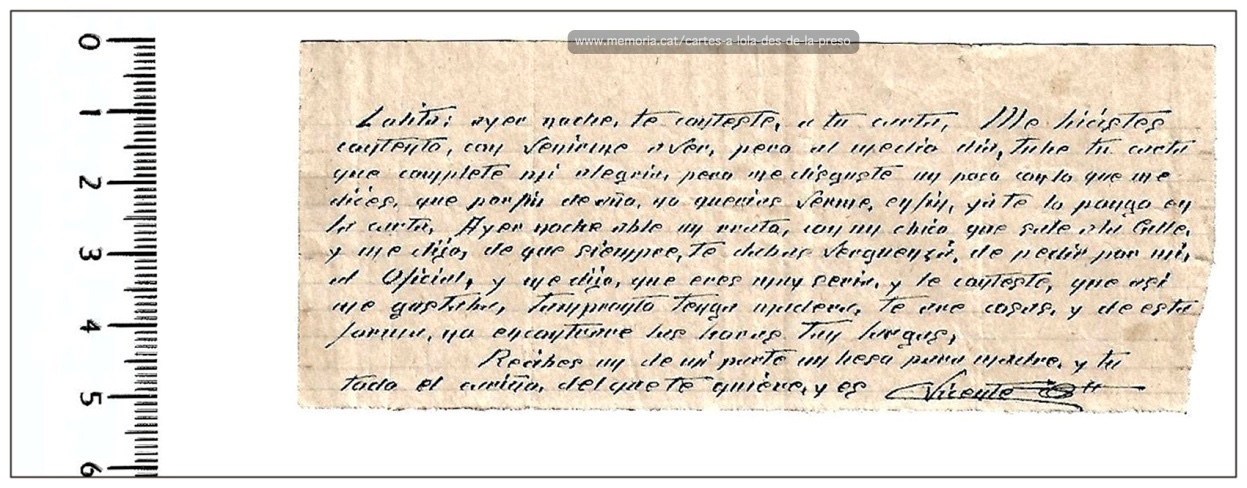 0
1
2
3
4
5
6
www.memoria.cat/cartes-a-lola-des-de-la-preso
Lolita: ayer noche, te conteste, a tu carta, Me hicistes
contento, con venirme a ver, pero al medio dia, tube tu carta
que complete mi alegria, pero me disguste un poco con lo que me
dices, que por fin de año, no querias verme, en fin, ya te lo pongo en
la carta, Ayer noche able un rrato, con un chico que sale a la Calle,
y me dijo, de que siempre, te dabas verguenza, de pedir por mi,
al Oficial, y me dijo, que eres muy seria, y le conteste, que asi
me gustaba, tampronto tenga madera, te are cosas, y de esta
forma, no encontrare las horas tan largas,
Recibes un de mi parte un beso para madre, y tu
todo el cariño, del que te quiere, y es Vicente